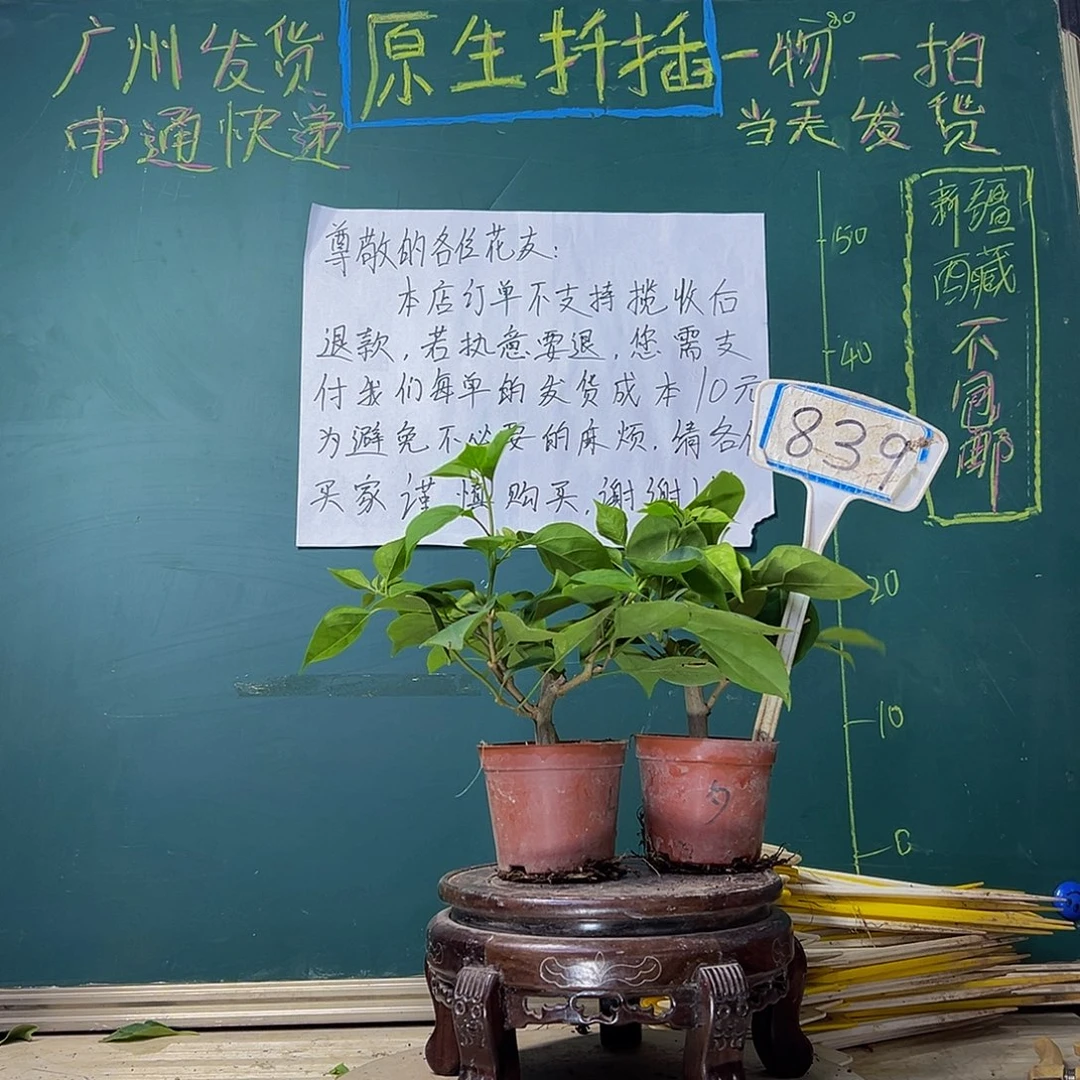 广州发货
申通快递
原生扦插
一物一拍
当天发货
新疆
西藏
不包邮
尊敬的各位花友:
本店订单不支持揽收后
退款,若执意要退,您需支
付我们每单的发货成本10元
为避免不必要的麻烦.请各位
买家谨慎购买,谢谢!
50
40
839
20
10
0